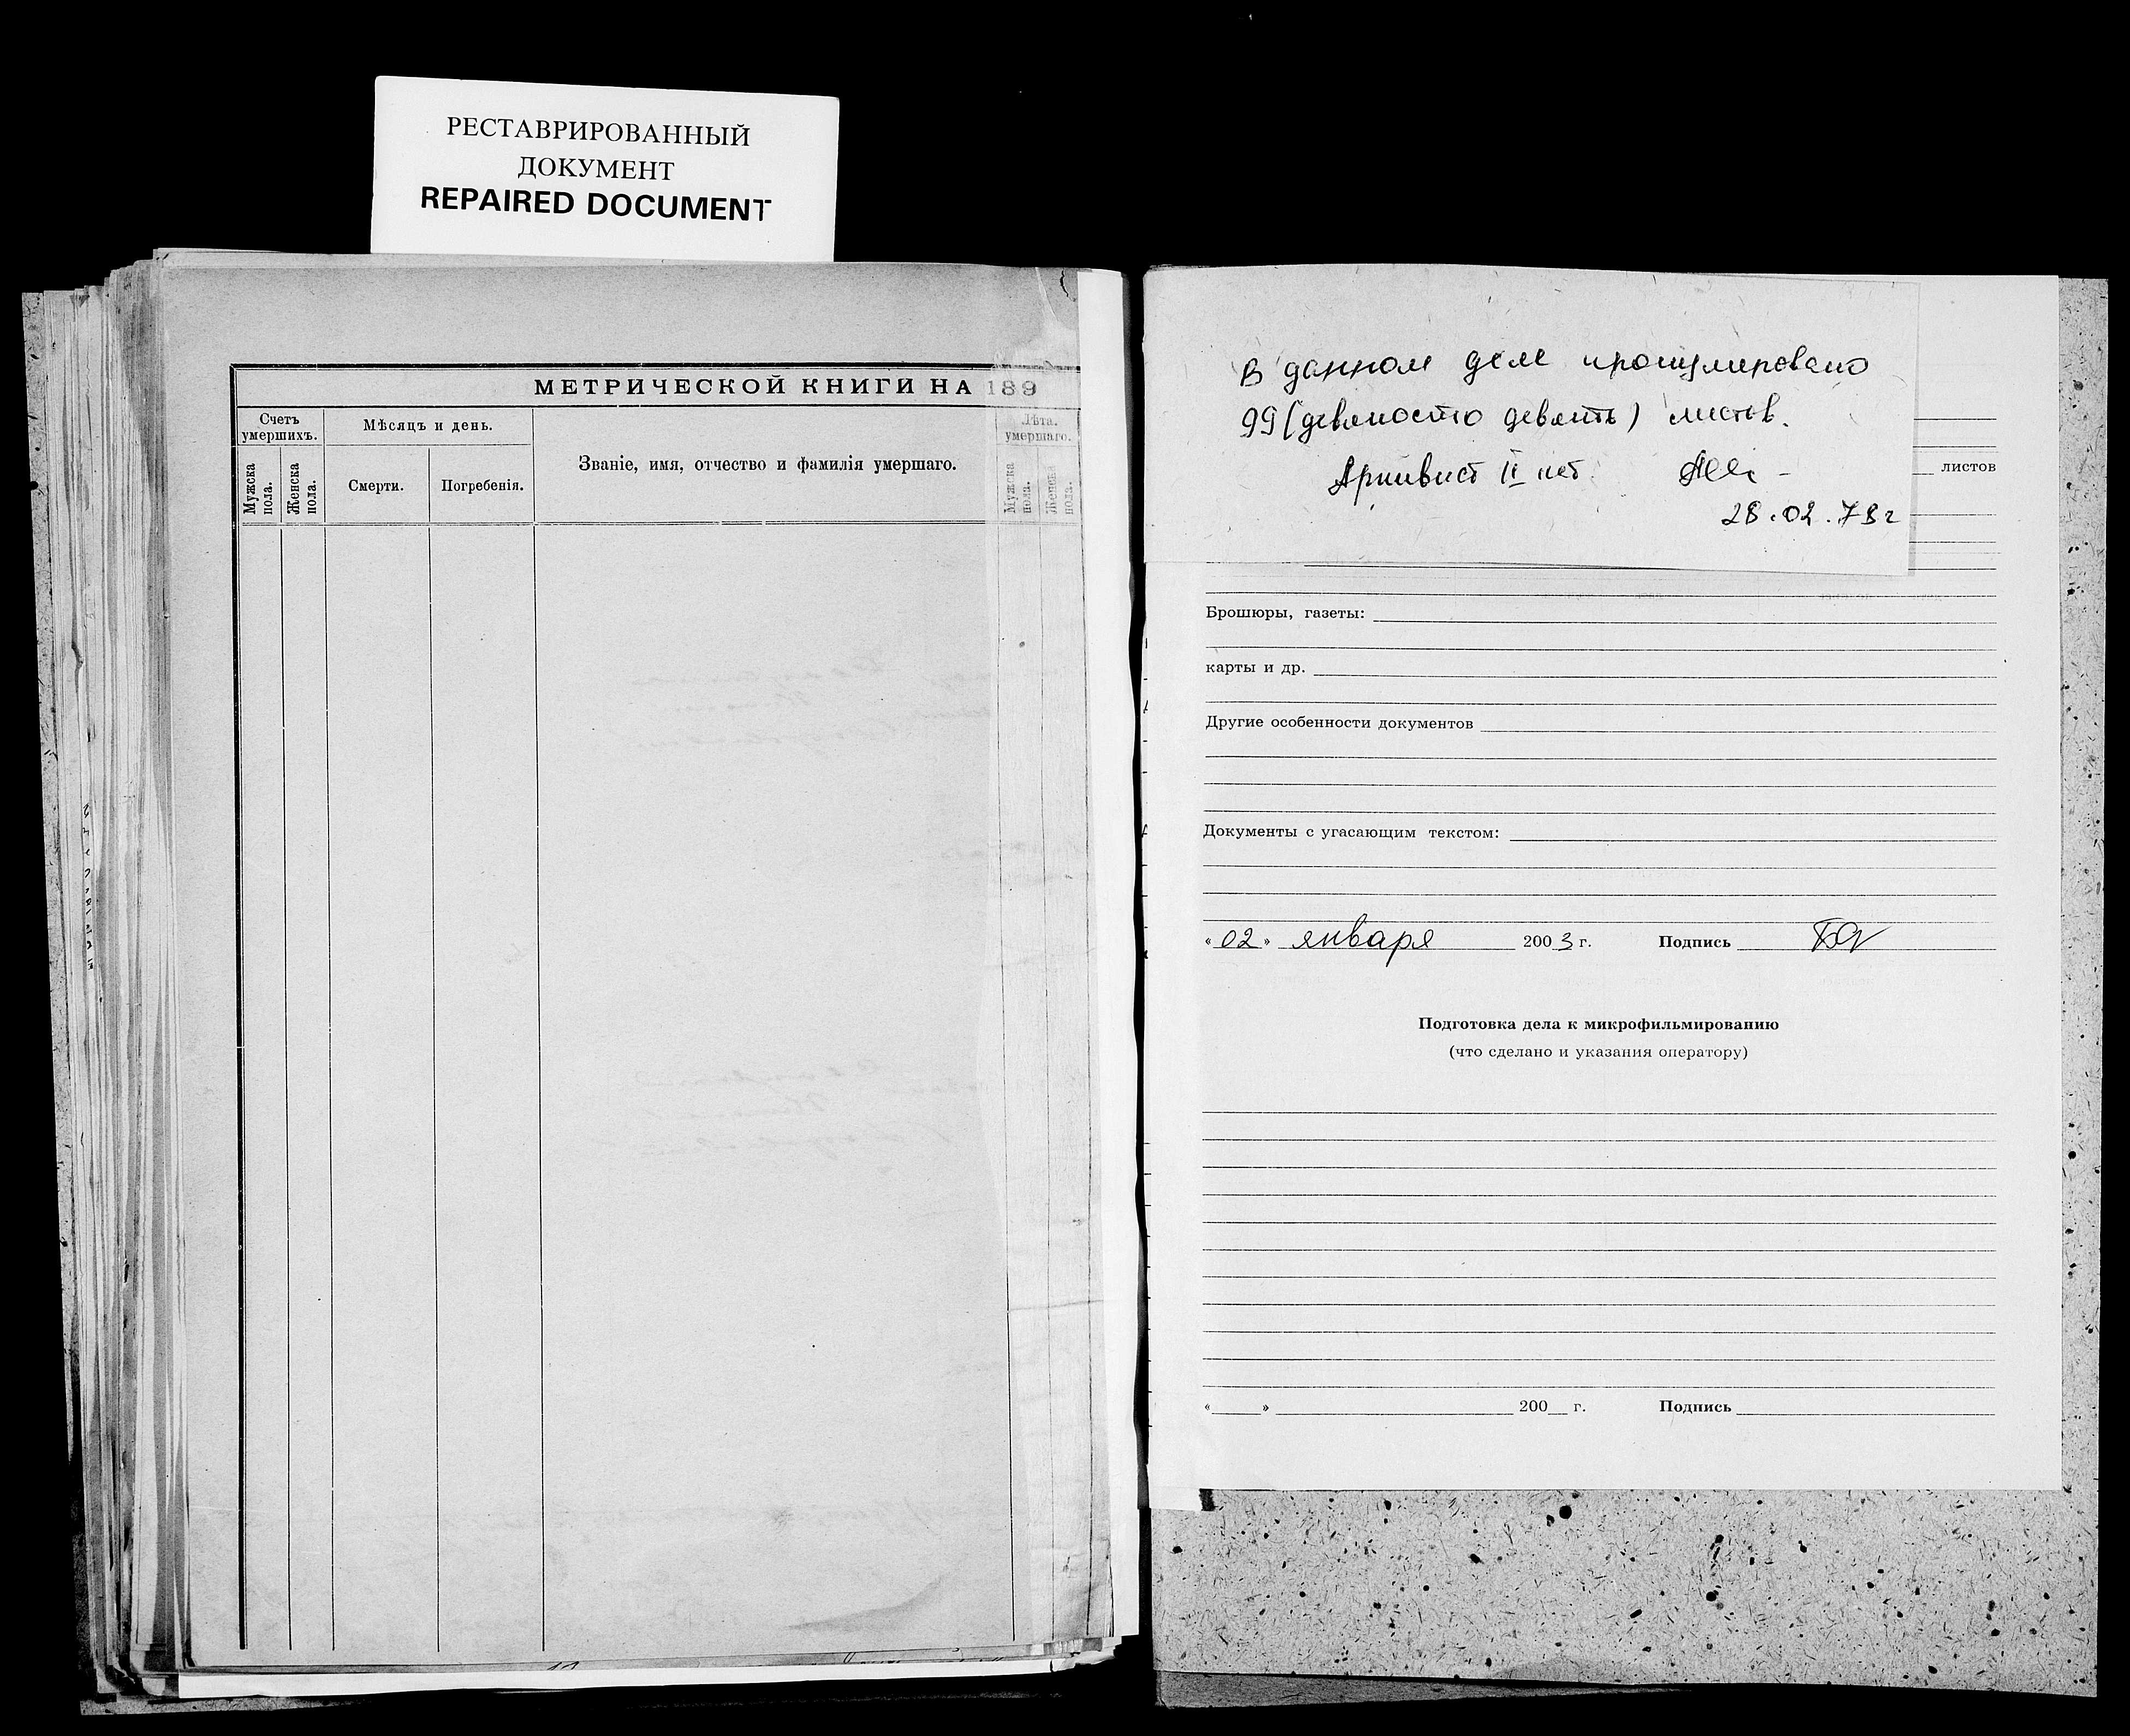 РЕСТАВРИРОВАННЫЙ
ДОКУМЕНТ
REPAIRED DOCUMENT
МЕТРИЧЕСКОЙ КНИГИ НА 189
Счетъ умершихъ.
Мужска пола.
Женска пола.
Мѣсяцъ и день.
Смерти.
Погребенія.
Званіе, имя, отчество и фамилія умершаго.
Лѣта. умершаго.
Мужска пола.
Женска пола.
В данном деле пронумеровано
99 (девяносто девять) листов.
Архивист II кат.
28.02.78г
листов
Брошюры, газеты:
карты и др.
Другие особенности документов
Документы с угасающим текстом:
«02» января 2003 г. Подпись
Подготовка дела к микрофильмированию
(что сделано и указания оператору)
«___» 200__ г. Подпись